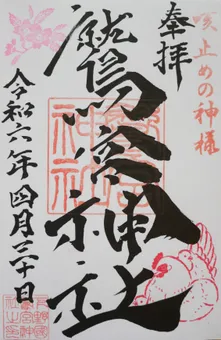 咳止めの神様
奉拝
鷲宮神社
鷲宮神社
令和六年四月三十日